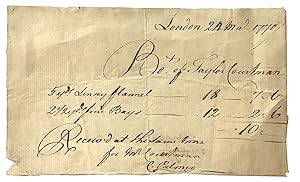 London 24 Ma. 1770
Bo.t of Taylor Courtman
5 yds Linny Flannel 18 7.6
2 1/2 yds fine Bays 12 2.6
10
Receivd at the same time
for Mr Courtman